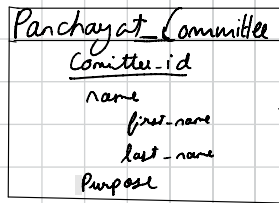 Panchayat_Committee
Comittee_id
name
first_name
last_name
Purpose